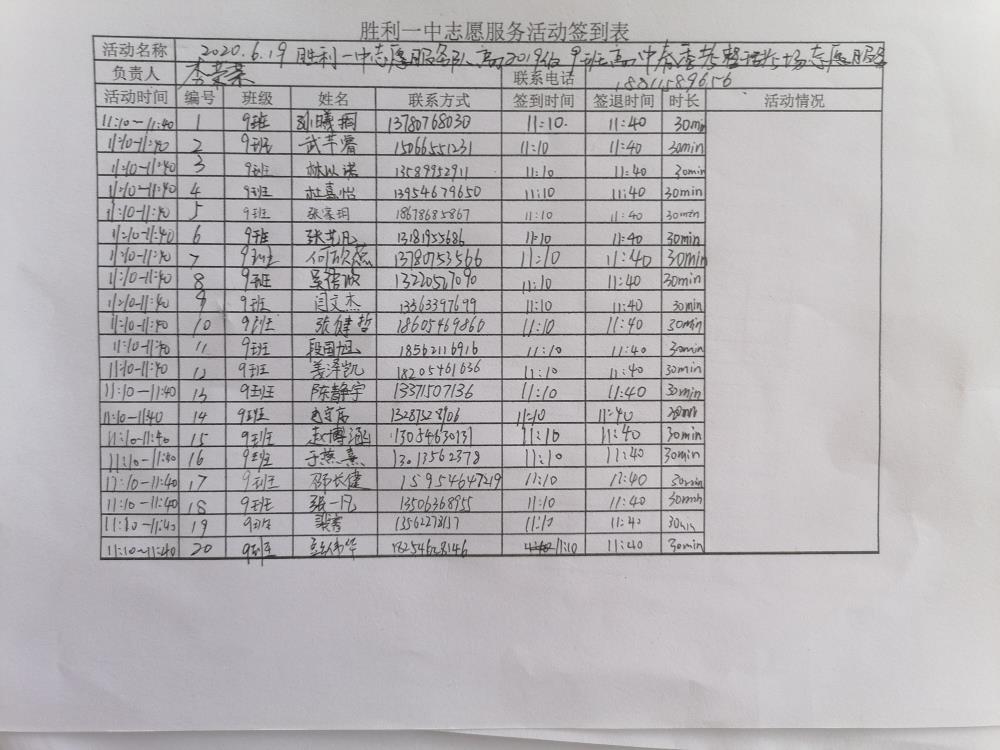 胜利一中志愿服务活动签到表
活动名称 2020.6.19 胜利一中志愿服务队高2019级9班高 考整理考场志愿服务
负责人 李荣荣 联系电话 18311589656
活动时间 编号 班级 姓名 联系方式 签到时间 签退时间 时长 活动情况
11:10-11:40 1 9班 孙曦桐 13780768030 11:10. 11:40 30min
11:10-11:40 2 9班 武芊睿 15066551231 11:10 11:40 30min
11:10-11:40 3 9班 林以诺 13589952911 11:10 11:40 30min
11:10-11:40 4 9班 杜嘉怡 13954679650 11:10 11:40 30min
11:10-11:40 5 9班 张 玥 18678685867 11:10 11:40 30min
11:10-11:40 6 9班 张艺凡 13181955686 11:10 11:40 30min
11:10-11:40 7 9班 何欣蕊 13780753566 11:10 11:40 30min
11:10-11:40 8 9班 吴 欣 13220527090 11:10 11:40 30min
11:10-11:40 9 9班 闫文杰 13363397699 11:10 11:40 30min
11:10-11:40 10 9班 张健哲 18605469860 11:10 11:40 30min
11:10-11:40 11 9班 段国旭 18562116916 11:10 11:40 30min
11:10-11:40 12 9班 姜泽凯 18205461636 11:10 11:40 30min
11:10-11:40 13 9班 陈静宇 13371507136 11:10 11:40 30min
11:10-11:40 14 9班 11:10 11:40 30min
11:10-11:40 15 9班 赵博涵 13054630131 11:10 11:40 30min
11:10-11:40 16 9班 于燕熹 13013562378 11:10 11:40 30min
11:10-11:40 17 9班 邵长健 15954647219 11:10 11:40 30min
11:10-11:40 18 9班 张一凡 13506368955 11:10 11:40 30min
11:10-11:40 19 9班 11:10 11:40 30min
11:10-11:40 20 9班 18254628146 11:10 11:40 30min